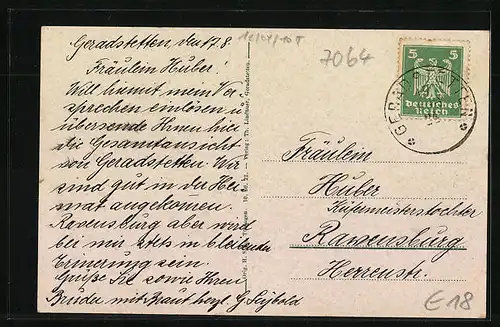 Geradstetten, den 17.8.
Fräulein Huber!
Will hiemit mein Ver-
sprechen einlösen u.
übersende Ihnen hier
die Gesamtansicht
von Geradstetten. Wir
sind gut in der Hei-
mat angekommen.
Ravensburg aber wird
bei mir stets in bleibender
Erinnerung sein.
Grüße Sie sowie Ihren
Bruder mit Braut herzl. G. Seybold
7064
5 5
Deutsches
Reich
Fräulein
Huber
Küfermeisterstochter
Ravensburg
Herrenstr.
€ 18